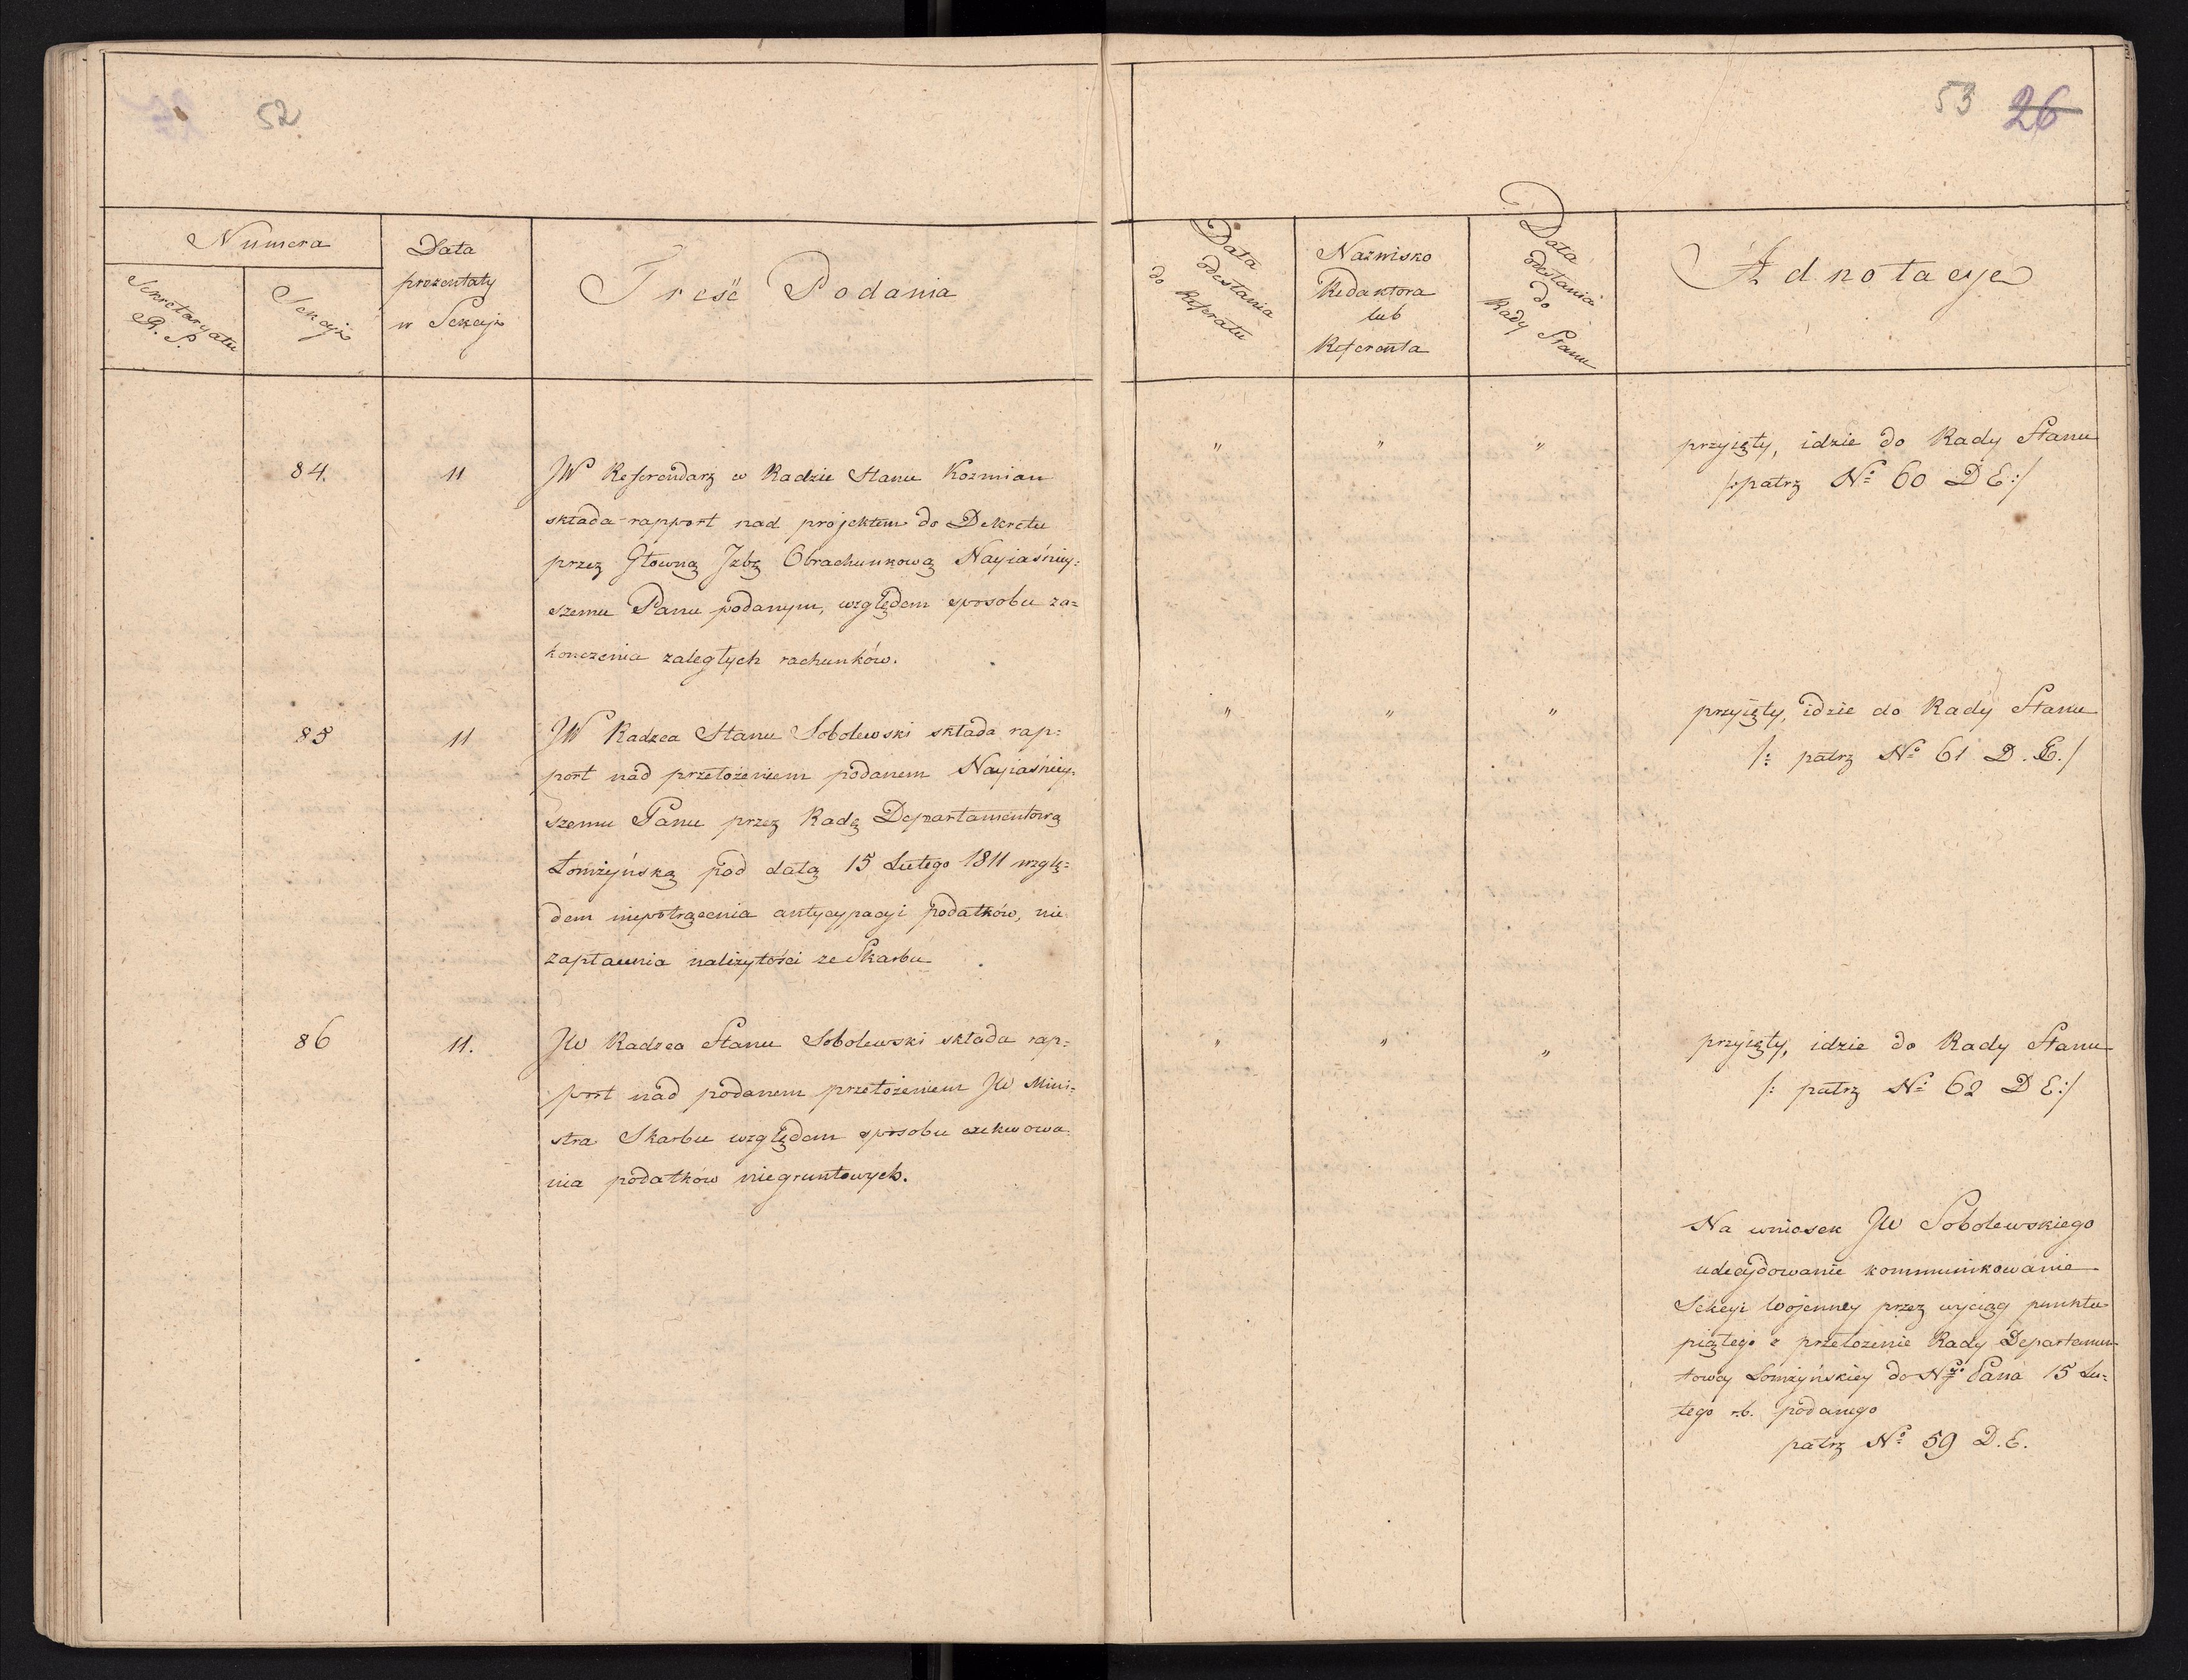 52
53 26
Numera
Sekretaryatu
R. S.
Sekcyi
Data
prezentaty
w Sekcyi
Treść Podania
Data
odesłania
do Referatu
Nazwisko
Redaktora
lub
Referenta
Data
odesłania
do
Rady Stanu
Adnotacye
84. 11 JW Referendarz w Radzie Stanu Kozmian
składa rapport nad projektem do Dekretu
przez Głowną Jzbę Obrachunkową Nayiaśniey:
szemu Panu podanym, względem sposobu za=
konczenia zaległych rachunków.
" " " przyięty, idzie do Rady Stanu
/:patrz No 60 D E:/
85 11 JW Radzca Stanu Sobolewski składa rap:
port nad przełożeniem podanem Nayiaśniey:
szemu Panu przez Radę Departamentową
Łomżyńską pod datą 15 Lutego 1811 wzglę:
dem niepotrącenia antycypacyi podatków, nie
zapłacenia należytości ze Skarbu
" " " przyięty, idzie do Rady Stanu
/: patrz No 61 D. E./
86 11. JW Radzca Stanu Sobolewski składa rap:
port nad podanem przełożeniem JW Mini:
stra Skarbu względem sposobu exekwowa:
nia podatków niegruntowych.
" " " przyięty, idzie do Rady Stanu
/: patrz No 62 D E:/
Na wniosek JW Sobolewskiego
udecydowanie kommunikowanie
Sekcyi Wojenney przez wyciąg punktu
piątego z przełożenie Rady Departamen-
towey Łomżyńskiey do Ngo Pana 15 Lu:
tego r.b. podanego
patrz No 59 D. E.